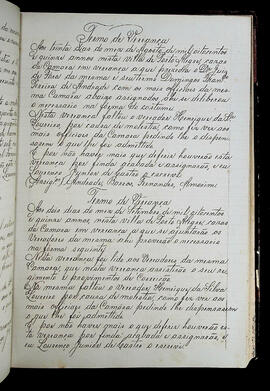 Termo de Vereança
Aos trinta dias do mez de Agosto de mil oitocentos
e quinze annos nesta Villa de Porto Alegre, cazas
da Camara em vereança a que prezidio o Dr. Juiz
de Fora da mesma e seu termo Domingos
Pereira de Andrade com os mais officiaes da mes-
ma Camara abaixo assignados, ahi se deliberou
o necessario na forma do costume
Nesta vereança faltou o vereador Henrique da S.ª
Loureiro por cauza de molestia, como fez ver aos
mais officiaes da Camara pedindo lhe a dispen-
sassem o que lhe foi admittido
E por não haver mais que deferir houverão esta
vereança por finda acabada e assignarão, e eu
Lourenço Junior de Castro o escrevi
Andrade, Barros, Fernandes,
Termo de Vereança
Aos dois dias do mez de Setembro de mil oitocentos
e quinze annos nesta Villa de Porto Alegre, cazas
da Camara em vereança a que se ajuntarão os
Vereadores da mesma ahi proverão o necessario
na forma seguinte
Nesta vereança foi lido aos Vereadores da mesma
Camara, que nesta vereança
e provimentos de Correição
Na mesma faltou o vereador Henrique da Silva
Loureiro por cauza de molestia, como fez ver aos
mais officiaes da Camara pedindo lhe dispensassem
o que lhe foi admittido
E por não haver mais o que deferir houverão es-
ta vereança por finda, acabada e assignarão, e
eu Lourenço Junior de Castro o escrevi